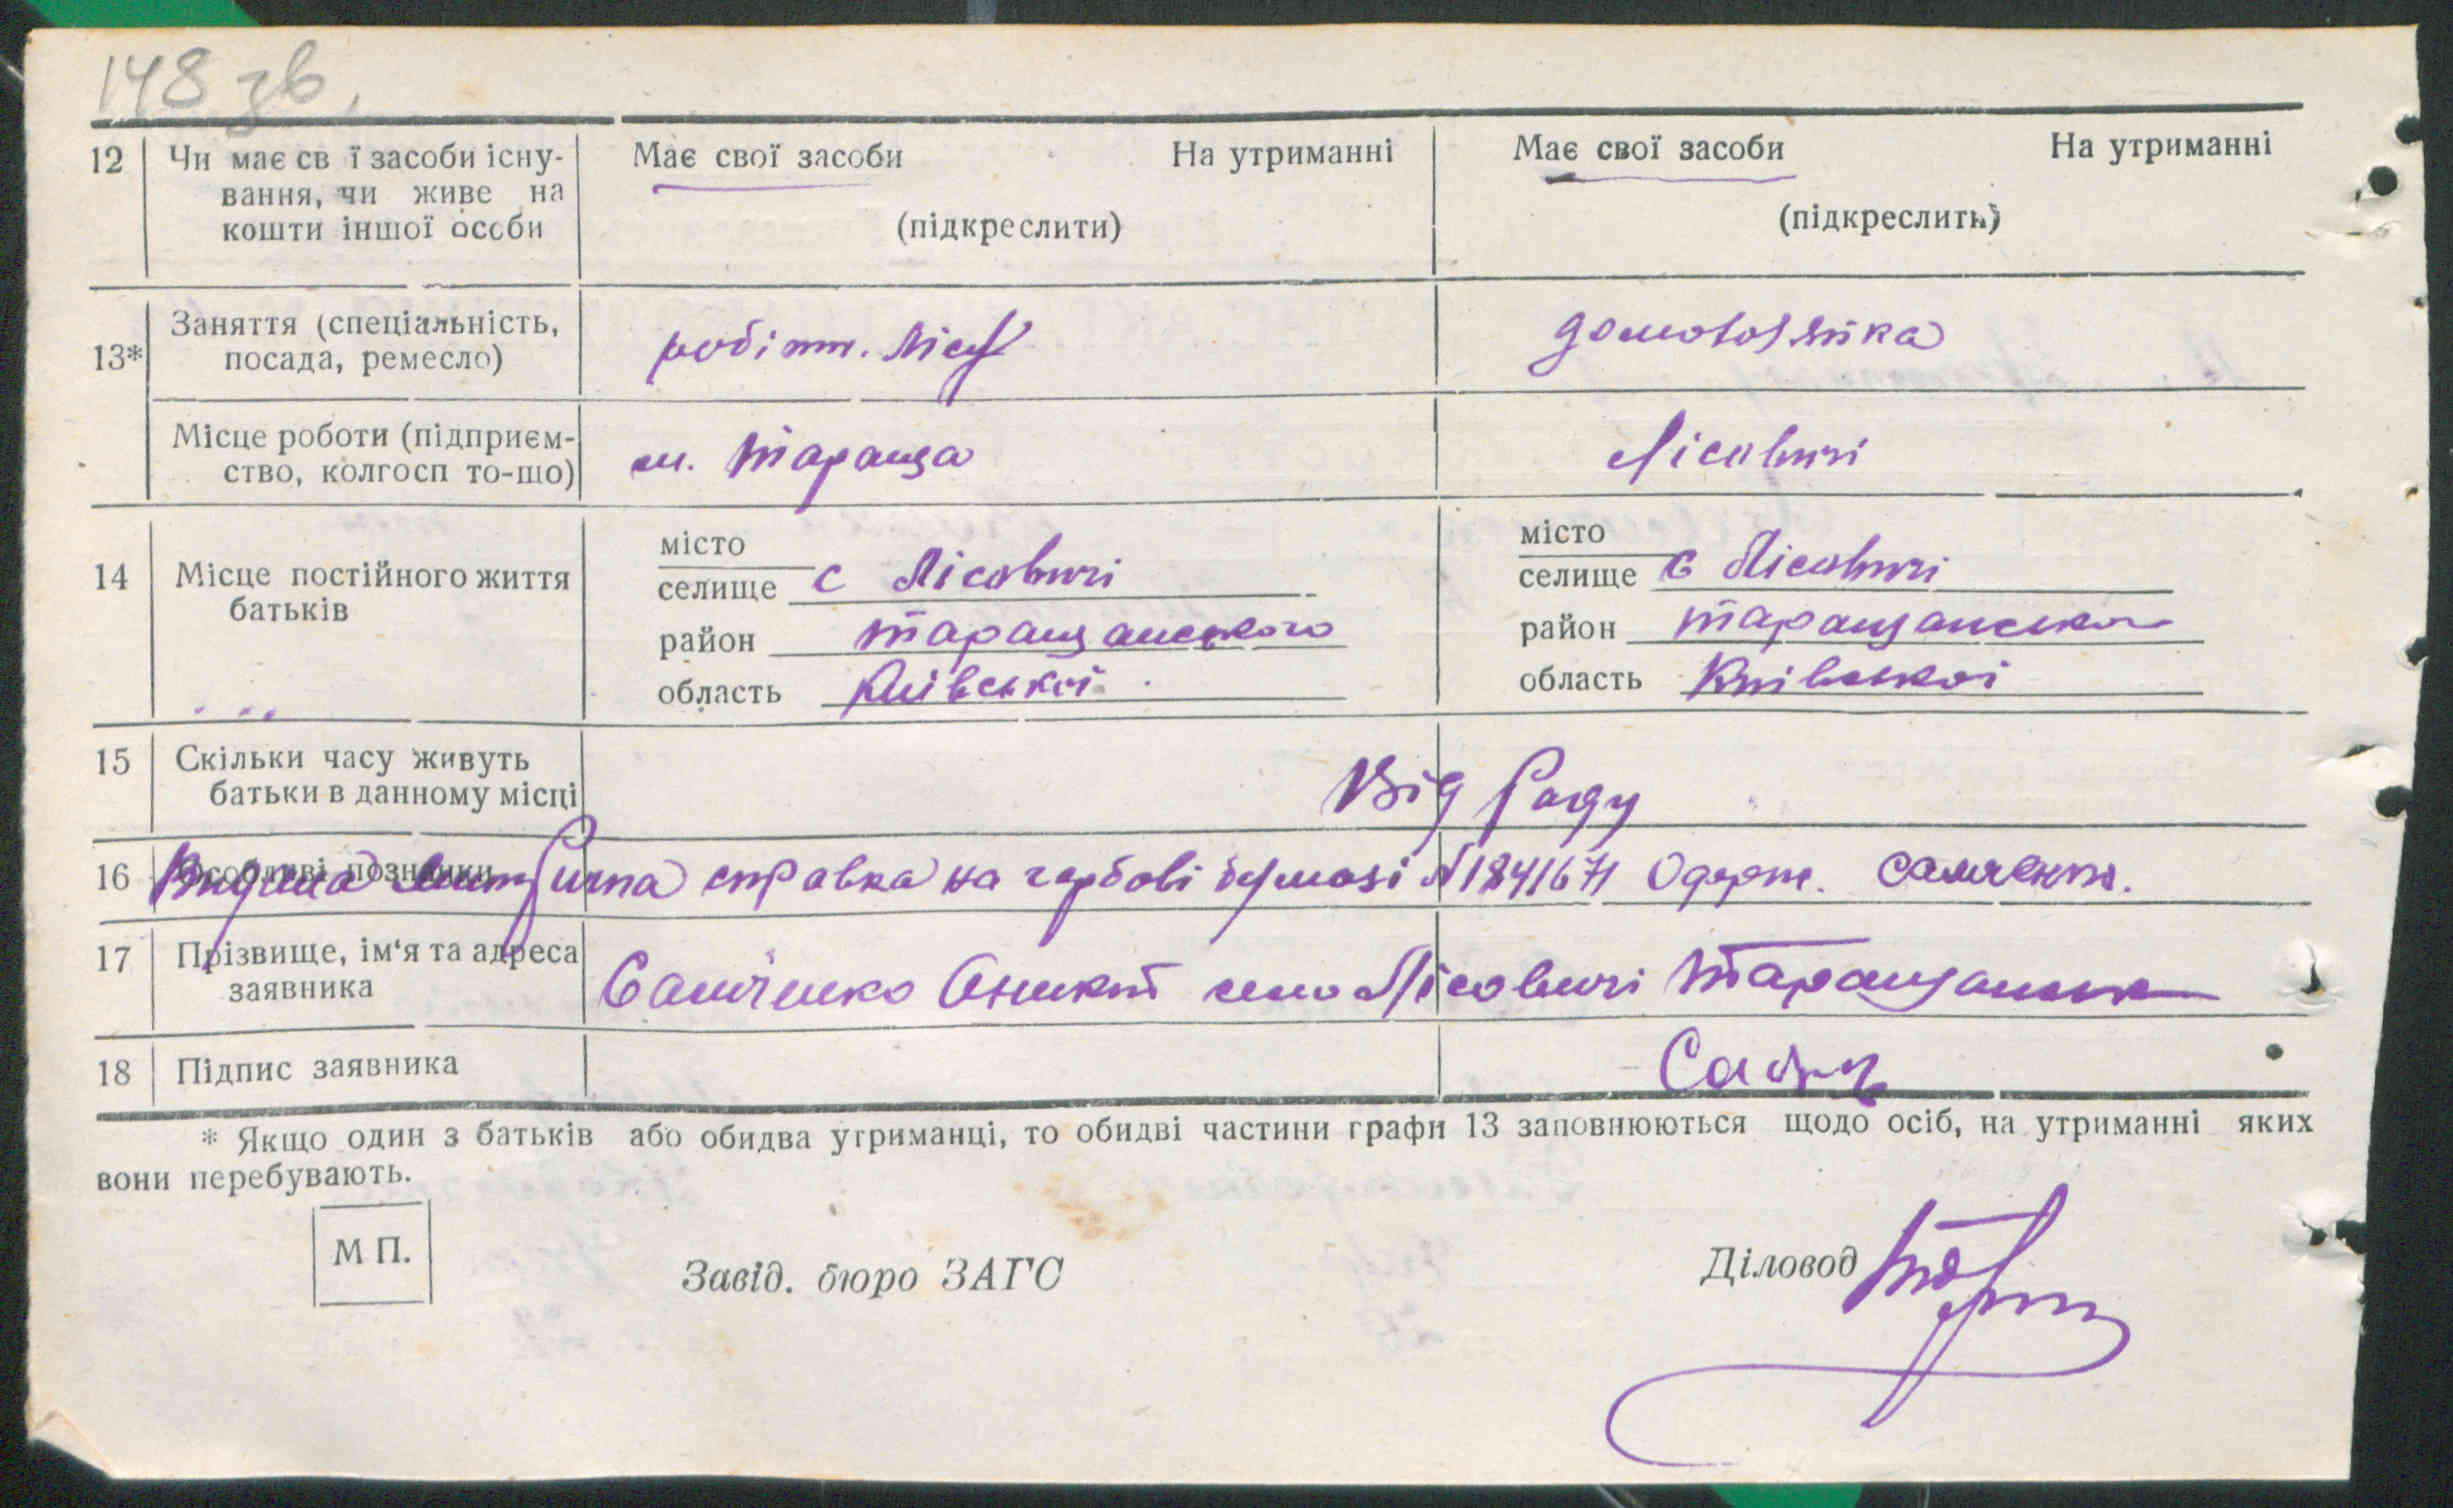 148 зв.
12 Чи має св ї засоби існу- Має свої засоби На утриманні Має свої засоби На утриманні
вання, чи живе на
кошти іншої особи (підкреслити) (підкреслить)
13* Заняття (спеціальність, домохазяйка
посада, ремесло) робітн.
Місце роботи (підприєм- м. Тараща Лісовичі
ство, колгосп то-що)
14 Місце постійного життя місто місто
батьків селище с Лісовичі селище с Лісовичі
район Таращанського район Таращанського
область Київської область Київської
15 Скільки часу живуть Від Роду
батьки в данному місці
16 Особливі познаики Видана справка на гербові бумазі № 1841671 Одерж. Самченко.
17 Прізвище, ім'я та адреса Самченко Оникій село Лісовичі Таращанськ
заявника
18 Підпис заявника
* Якщо один з батьків або обидва утриманці, то обидві частини графи 13 заповнюються щодо осіб, на утриманні яких
вони перебувають.
М П. Завід. бюро ЗАГС Діловод